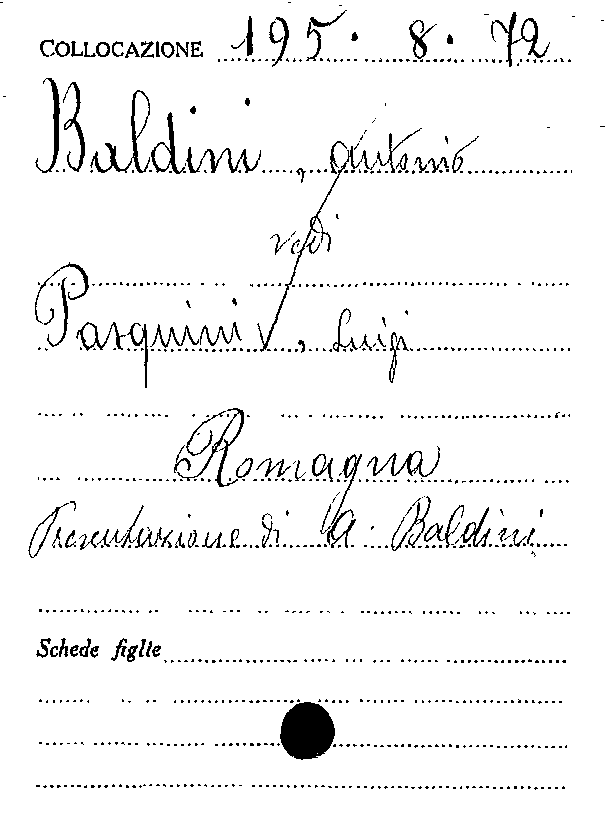 COLLOCAZIONE 195. 8. 72
Baldini, Antonio
vedi
Pasquini, Luigi
Romagna
Presentazione di A. Baldini
Schede figlie